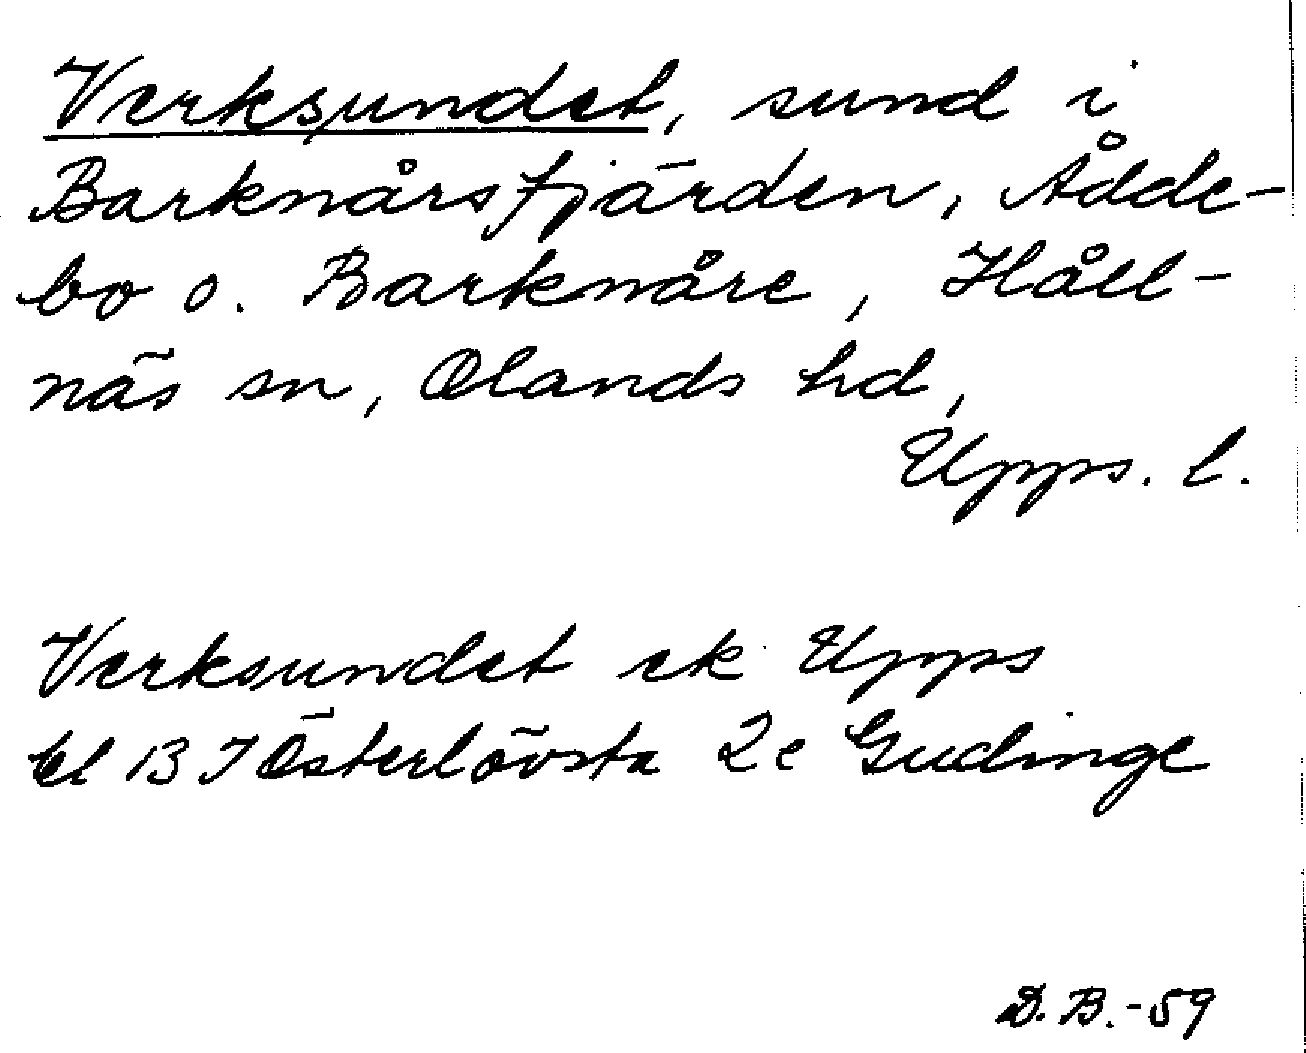 Verksundet, sund i
Barknårsfjärden, Ådde-
bo o. Barknåre, Håll-
näs sn, Olands hd,
Upps. l.
Verksundet ek Upps
bl 13 I Österlövsta 2e Gudinge
D.B.-59